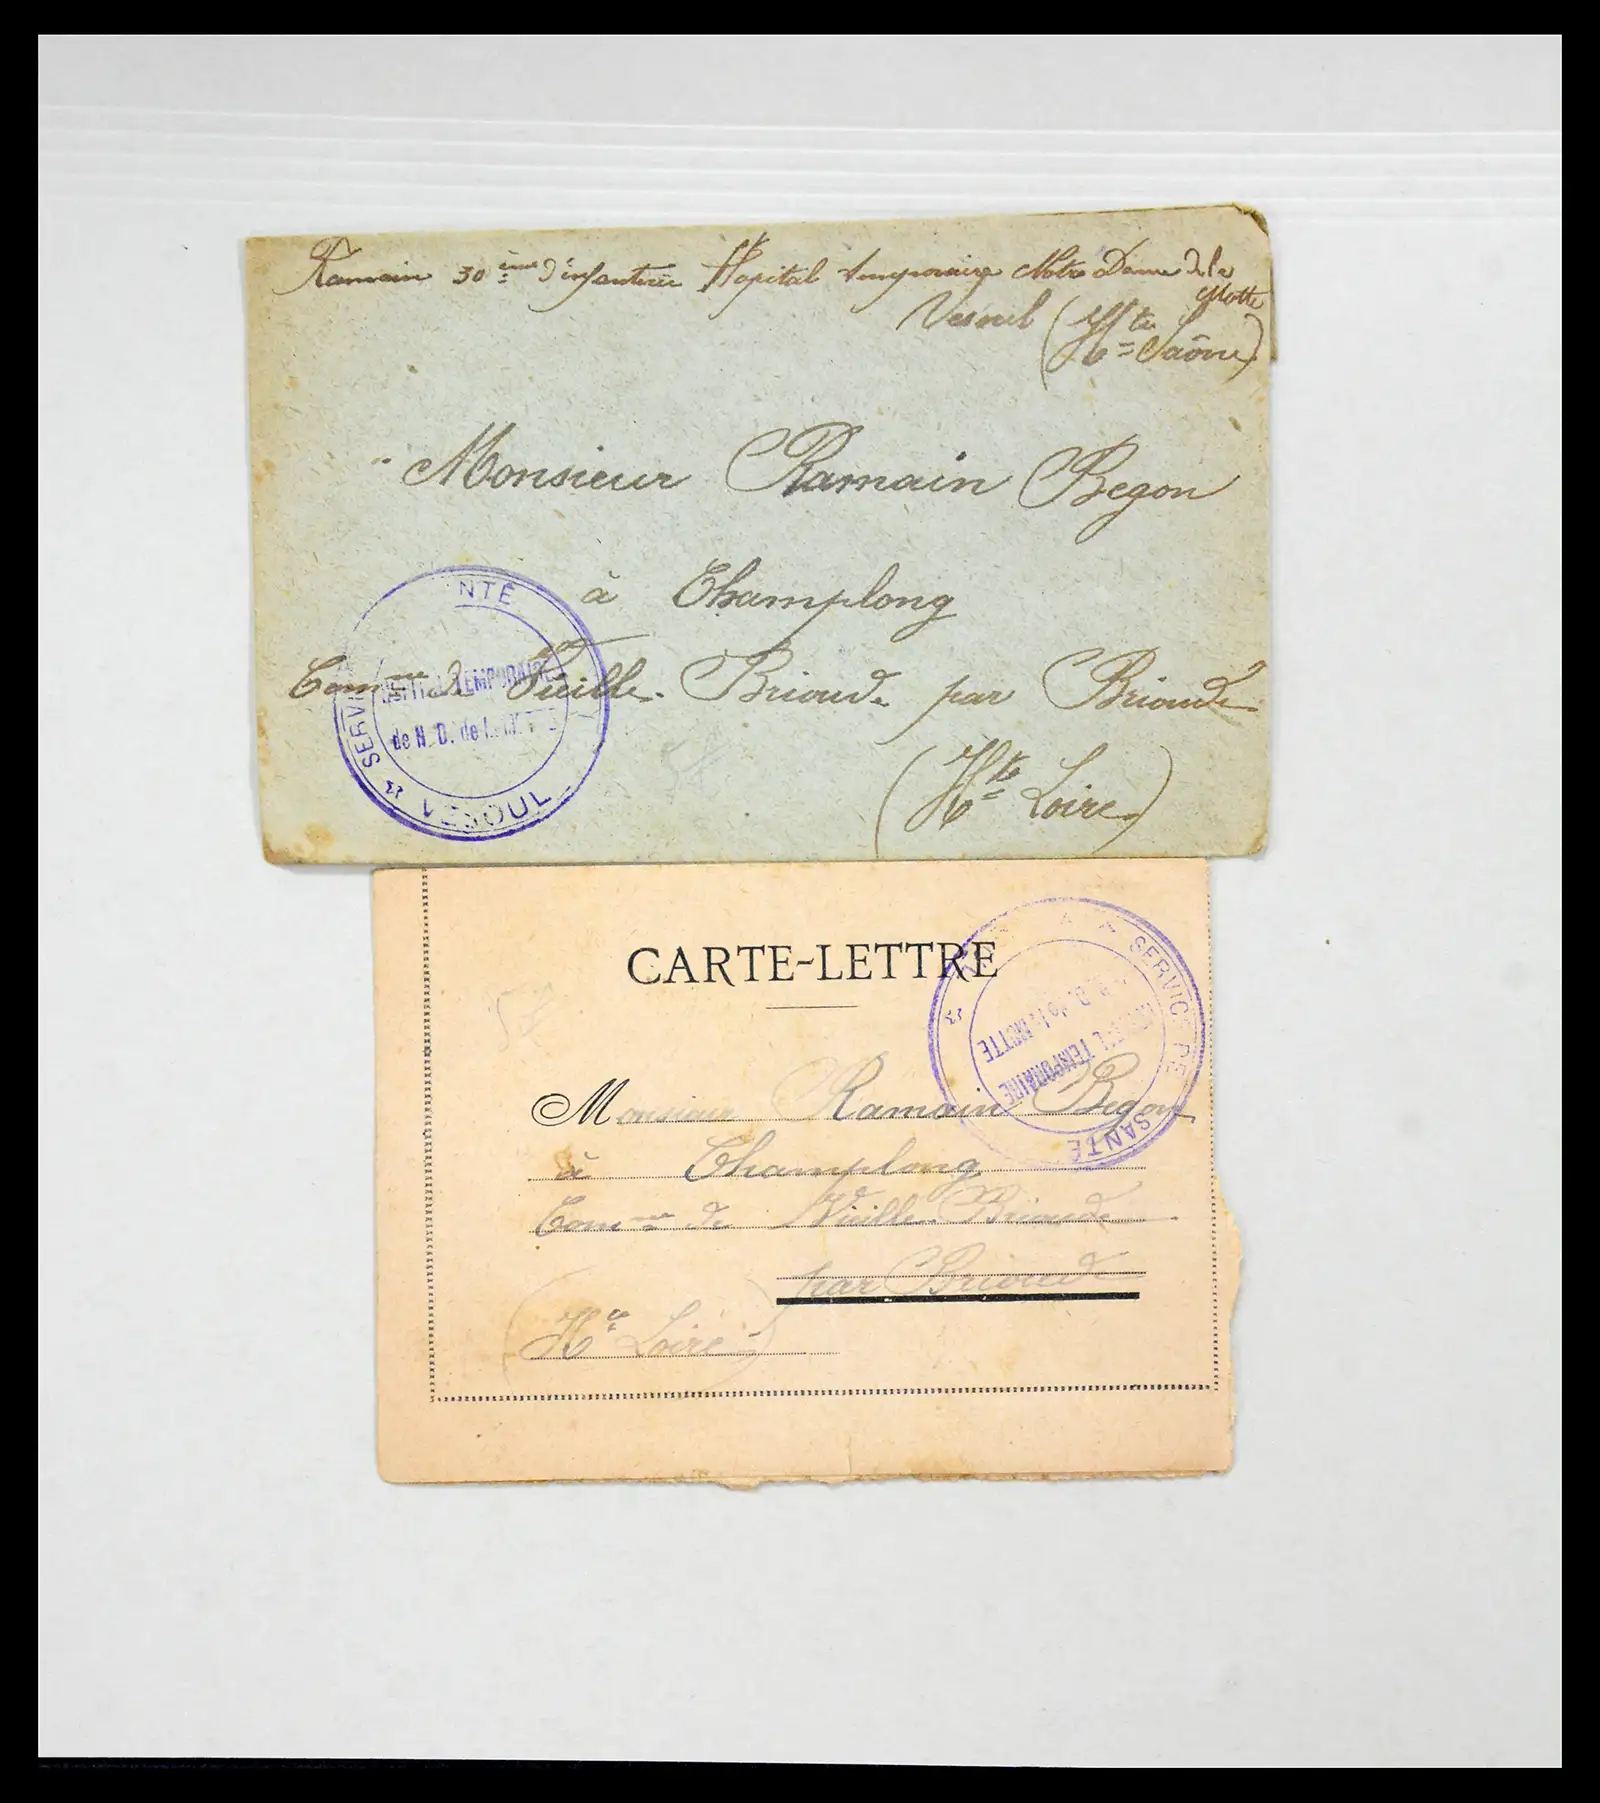 Ramain 30ème d'infanterie Hopital temporaire Notre Dame de la
Motte
Vesoul (Hte Saône)
Monsieur Ramain Begon
à Champlong
Comne de Vieille-Brioude par Brioude
(Hte Loire)
SERVICE NTÉ
TEMPORAIRE
de N. D. de
VESOUL
CARTE-LETTRE
SERVICE DE SANTÉ
TEMPORAIRE
D. de la MOTTE
Monsieur Ramain Begon
à Champlong
Comne de Vieille-Brioude
par Brioude
(Hte Loire)